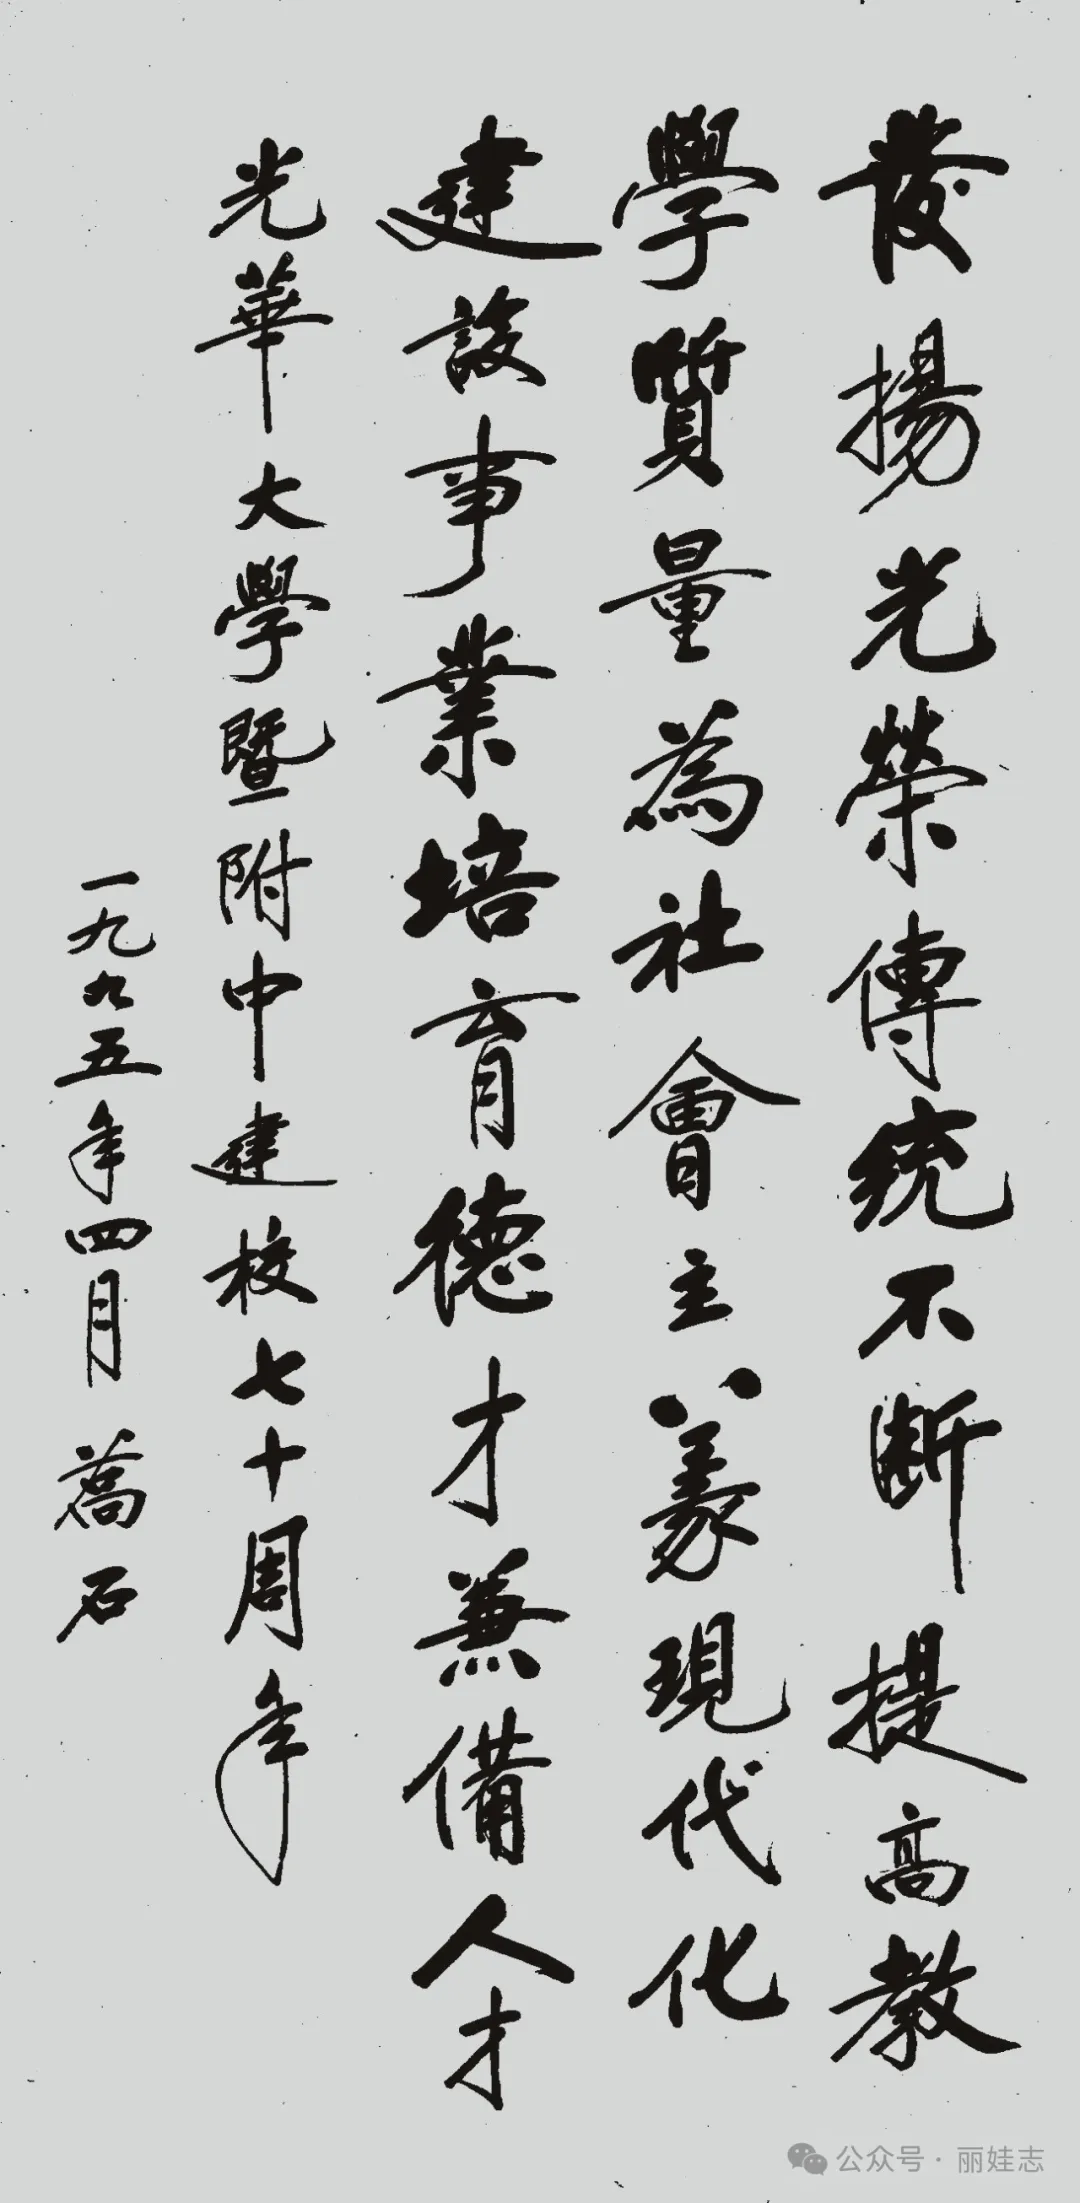 發揚光榮傳統不断提高教
學質量為社會主義現代化
建設事業培育德才兼備人才
光華大學暨附中建校七十周年
一九九五年四月 喬石
公众号·丽娃志